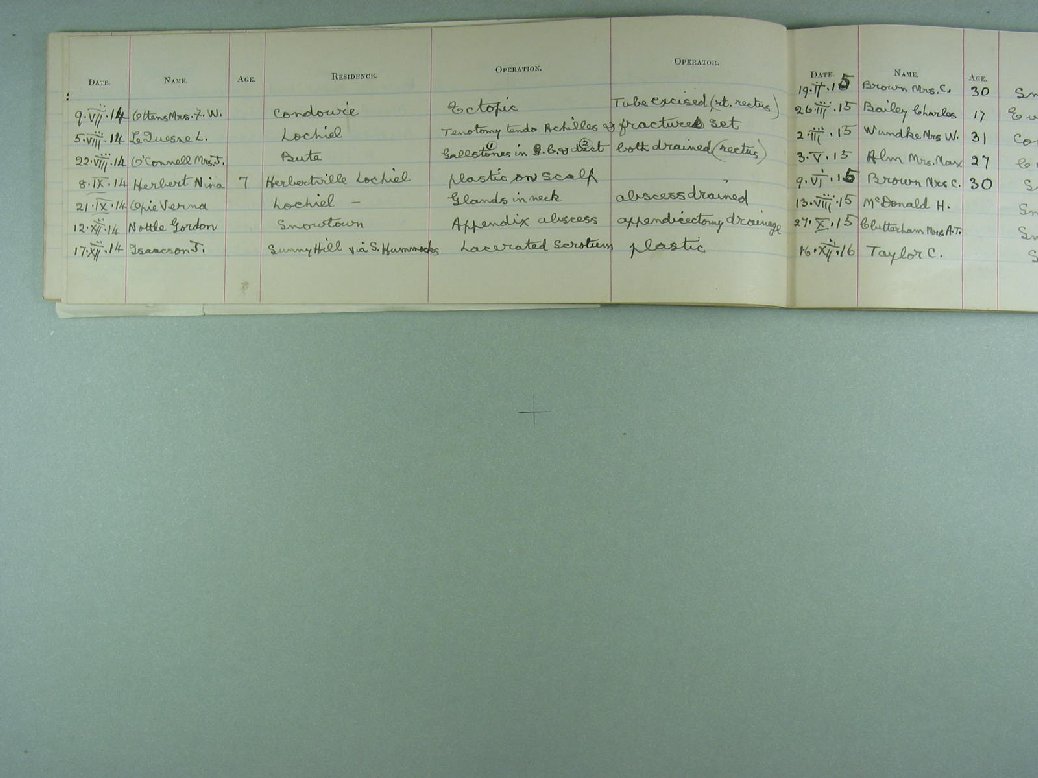 DATE. NAME. AGE. RESIDENCE. OPERATION. OPERATOR.
9.VII.14 Ottens Mrs. F. W. Condowie Ectopic Tube excised (rt. rectus)
5.VIII.14 LeDuesne L. Lochiel Tenotomy tendo Achilles & fractured set
22.VIII.14 O'Connell Mrs. J. Bute Gallstones in G.B. & duct both drained (rectus)
8.IX.14 Herbert Nina 7 Herbertville Lochiel plastic on scalp
21.IX.14 Opie Verna Lochiel – Glands in neck abscess drained
12.XII.14 Nottle Gordon Snowtown Appendix abscess appendicectomy drainage
17.XII.14 Isaacson J. Sunny Hill via S. Hummocks Lacerated Scrotum plastic
DATE. NAME. AGE.
19.II.15 Brown Mrs. C. 30 Sn
26.III.15 Bailey Charles 17
2.III.15 Wundke Mrs W. 31 Co
3.V.15 Alm Mrs. Max 27
9.VI.15 Brown Mrs C. 30 S
13.VIII.15 McDonald H. Sn
27.X.15 Clutterham Mrs A.T. Sn
16.XII.16 Taylor C. S